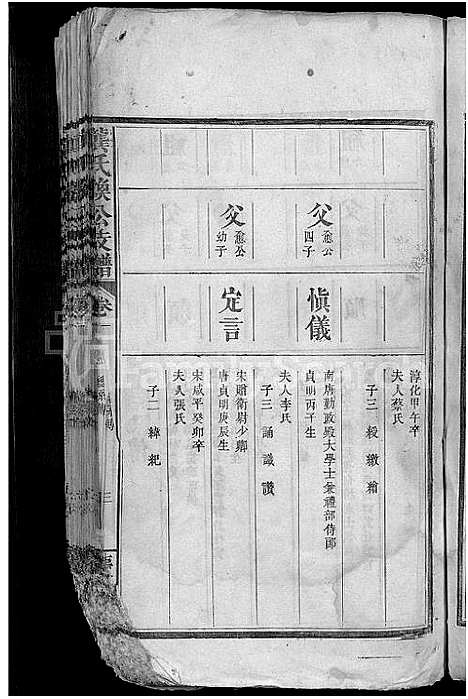 父
愈公
四子
慎儀
父
愈公
幼子
定言
淳化甲午卒
夫人蔡氏
子三
南唐勤政殿大學士兼禮部侍郎
貞明丙子生
夫人李氏
子三 誦 識 讚
宋贈衛尉少卿
唐貞明庚辰生
宋咸平癸卯卒
夫人張氏
子二 綽 紀
龔氏 公支譜
卷一
三